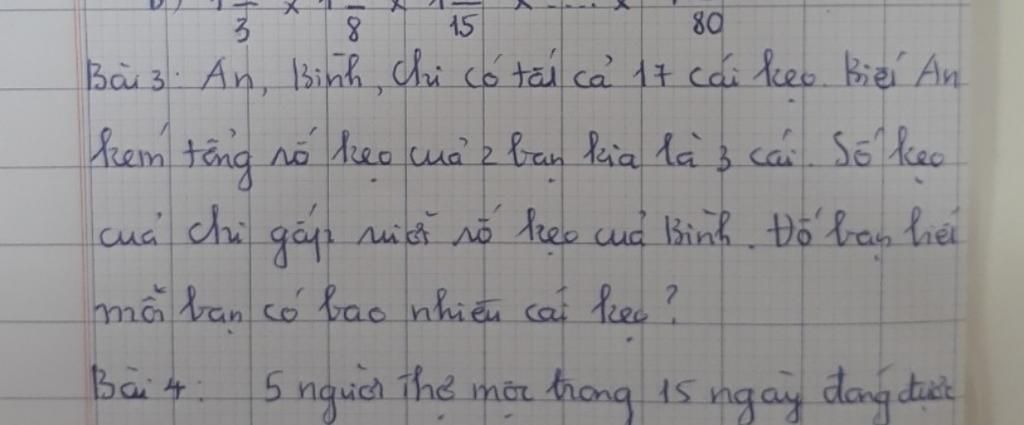 3 × 8 × 15 × .... × 80
Bài 3: An, Bình, Chi có tất cả 17 cái kẹo. Biết An
kém tổng số kẹo của 2 bạn kia là 3 cái. Số kẹo
của Chi gấp rưỡi số kẹo của Bình. Đố bạn biết
mỗi bạn có bao nhiêu cái kẹo?
Bài 4: 5 người thợ mộc trong 15 ngày đóng được